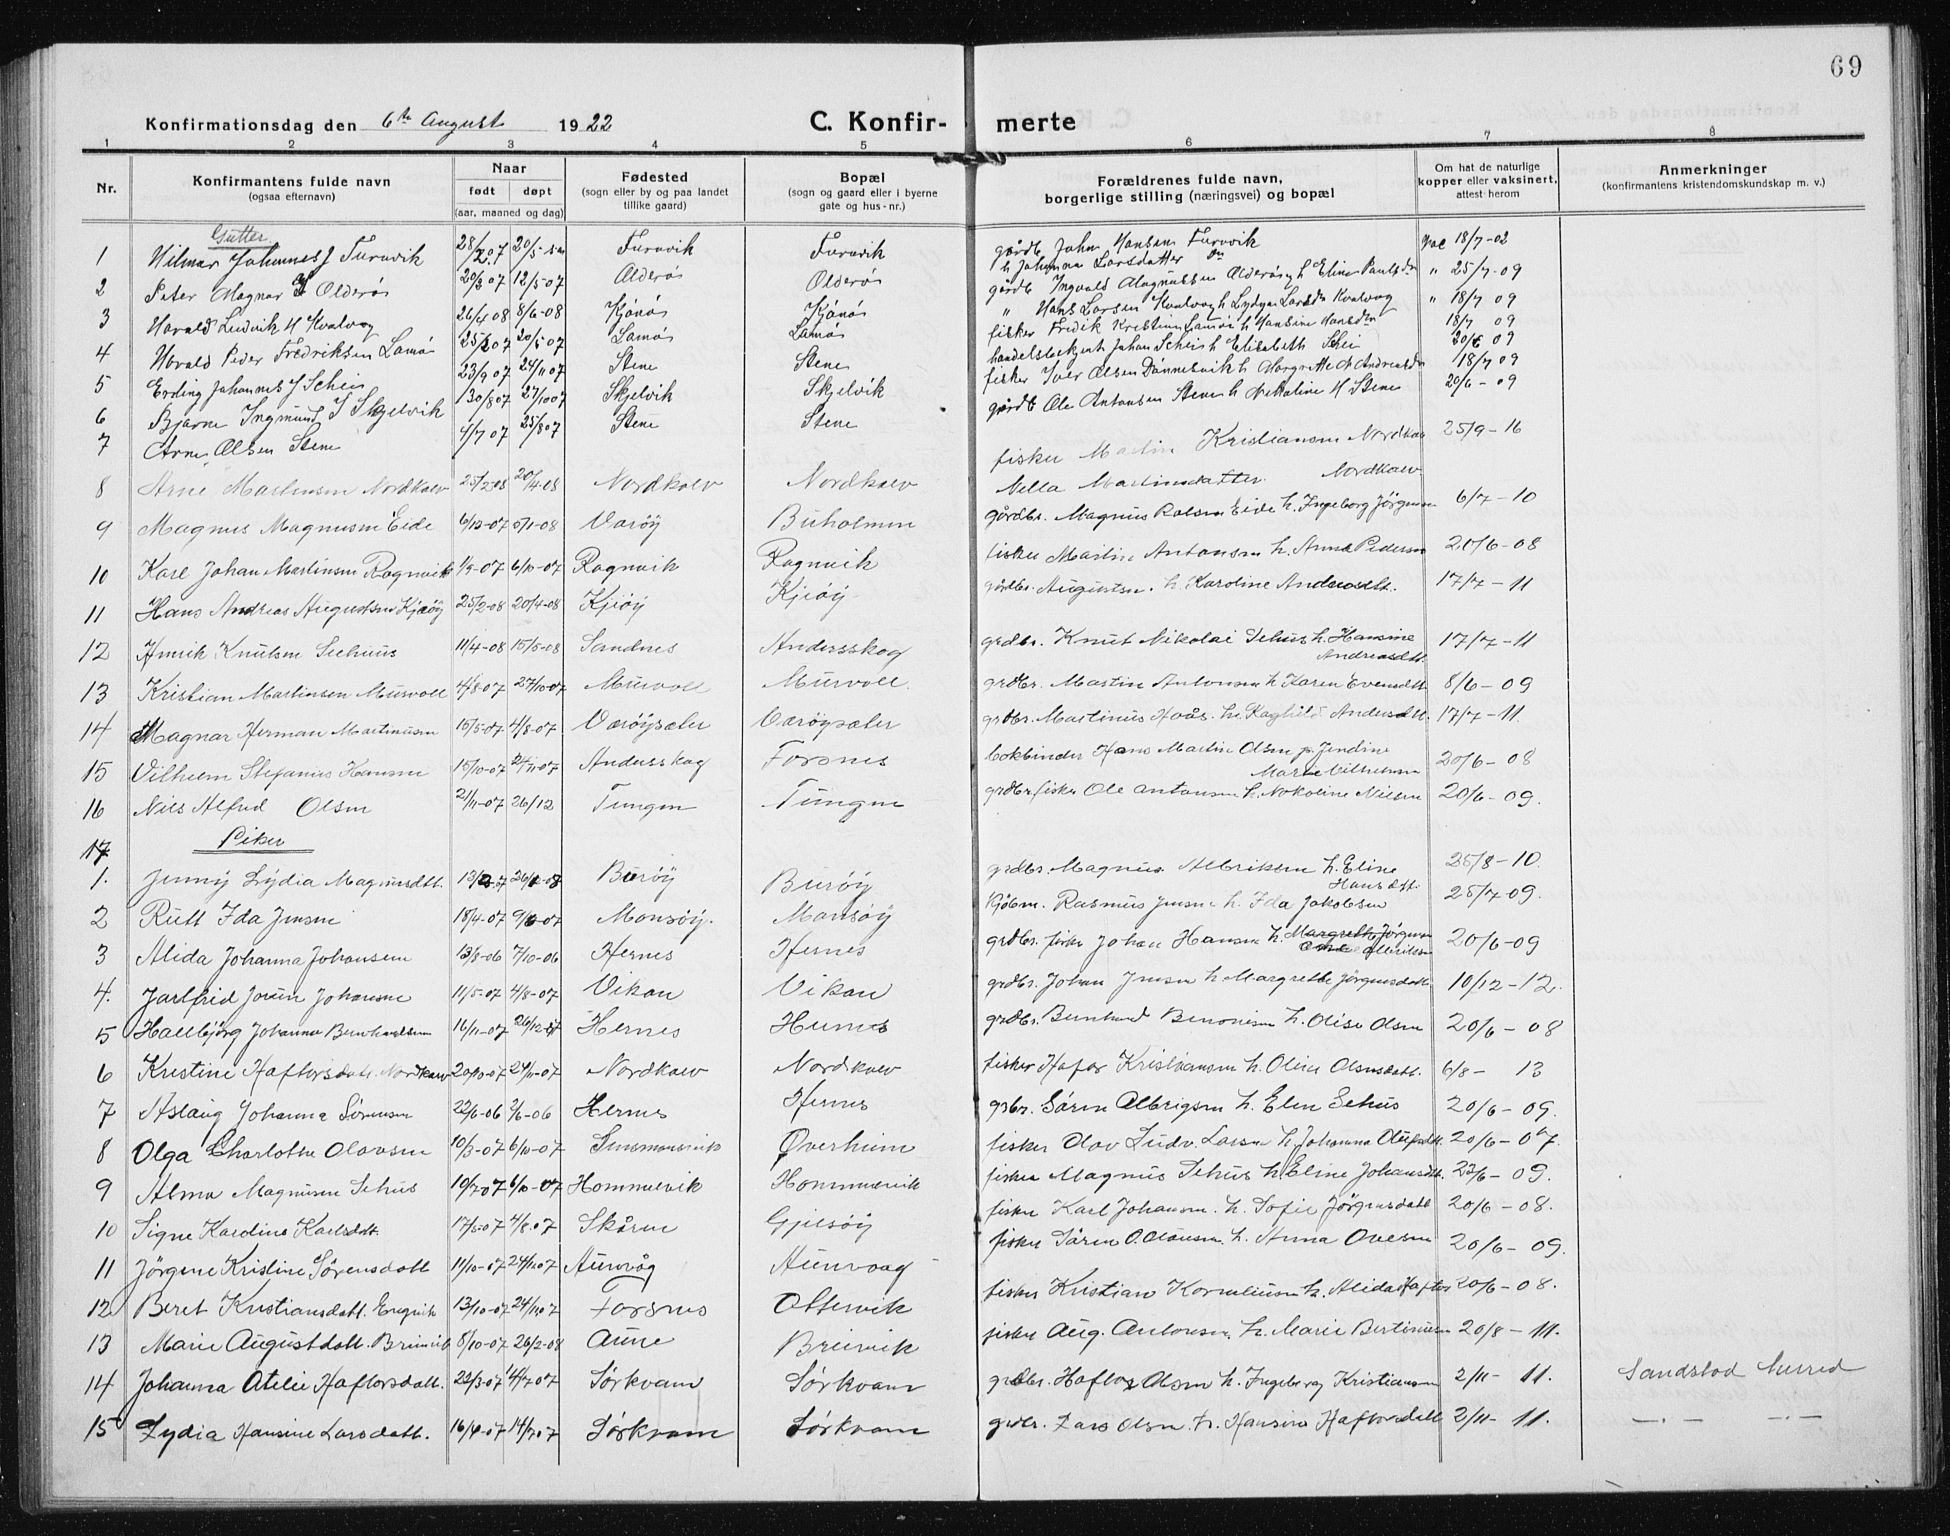 69
Konfirmationsdag den 6te August 1922 C. Konfir- merte
1 2 3 4 5 6 7 8
Nr. Konfirmantens fulde navn (ogsaa efternavn) Naar født døpt (aar, maaned og dag) Fødested (sogn eller by og paa landet tillike gaard) Bopæl (sogn og gaard eller i byerne gate og hus-nr.) Forældrenes fulde navn, borgerlige stilling (næringsvei) og bopæl Om hat de naturlige kopper eller vaksinert, attest herom Anmerkninger (konfirmantens kristendomskundskap m. v.)
Gutter
1 Hilmar Johannes J Furuvik Furuvik Furuvik gårdb John Hansen Furuvik h Johanna Larsdatter 18/7-02
2 Peter Magnar I Olderøs 20/3 07 12/5-07 Olderøs Olderøs gårdb Ingvald Magnussen Olderøs h Eline " 25/7-09
3 Harald Ludvik H Kvalvag 8/6-08 Kjønøs Kjønøs " Hans Larsen Kvalvog h Lydia Kvalvog " 18/7 09
4 Harald Peder Fredriksen Lamøs 20/5 07 Lamøs Lamøs fisker Fredik Kristian Lamøs h Hansine 18/7 09
5 Erding Johannes J Schei 23/9 07 24/11 07 Stene Stene Johan Schei h Elisabeth Schei 20/6 09
6 Bjarne Ingmund I Skjelvik 30/8 07 27/10 07 Skjelvik Skjelvik fisker Iver Olsen Dønnesvik h Margrethe 18/7 09
7 Arne Olsen Stene 4/7 07 25/8 07 Stene Stene gårdb Ole Antonsen Stene h H Stene 20/6-09
8 Arne Martinsen Nordkaev 25/2-08 20/4-08 Nordkaev Nordkaev fisker Martin Kristiansen Nordkaev Nella Martinsdatter Nordkaev 25/9-16
9 Magnus Magnusen Eide 6/12-07 5/1-08 Varøy Buholmen gårdbr. Magnus Eide h. Ingeborg 6/7-10
10 Karl Johan Martinsen Ragnvik 1/9-07 6/10-07 Ragnvik Ragnvik fisker Martin Antonsen h. Anna Pedersen 20/6-08
11 Hans Andreas Augustsen Kjeøy 25/2-08 20/4-08 Kjeøy Kjeøy gårdbr. Augustsen. h. Karoline 17/7-11
12 Henrik Knutsen Sehuus 11/4-08 15/5-08 Sandnes Andersskog grdbr. Knut Nikolai Sehus h. Hansine Andreasdtt. 17/7-11
13 Kristian Martinsen Murvoll 4/8-07 27/10-07 Murvoll Murvoll. grdbr. Martin Antonsen h Karen Evensdtt 8/6-09
14 Magnar Herman Martinusen 15/5-07 4/8-07 Værøysæter Værøysæter grdbr. Martinus Hoås. h. Andersdtt. 17/7-11
15 Vilhelm Stefanus Hansen 15/10-07 Andersskog Forsnes bokbinder Hans Martin Olsen Jendine Marie Vilhelmsen 20/6-08
16 Nils Alfred Olsen 21/11-07 26/12 Tungen Tungen grdbr. fisker Ole Antonsen h. Nielsen 20/6-09.
17 Piker
1. Jenny Lydia Magnusdtt. Burøy Burøy grdbr. Magnus Albriksen h. Eline Hansdtt. 25/8-10.
2 Rutt Ida Jensen 18/4-07 Monsøy. Monsøy Rasmus Jensen h. Ida Jakobsen 25/7-09.
3 Alida Johanna Johansen 13/8-06 7/10-06 Hernes Hernes grdbr. fisker Johan Hansen h. Margrethe Jørgensen 20/6-09
4. Jarlfrid Johansen 11/5-07 4/8-07 Vikan Vikan grdbr. Johan Jensen h Margrethe Jørgensdatt 10/12-12.
5 Hallbjörg Johanna Bernhardsen 16/11-07 26/12-07 Hernes Hernes grdbr. Bernhard Benonisen h. Olise Olsen 20/6-08
6 Kristine Haftorsdatt. Nordkaev 20/10-07 24/11-07 Nordkaev Nordkaev fisker Haftor Kristiansen h. Olina Olsensdatt. 6/8-13
7 Aslaug Johanna Sörensen 22/6-06 Hernes Hernes grbr. Sören Albrigsen h. Elen Sehus 20/6-09.
8 Olga Charlotte Olavsen 10/3-07 6/10-07 Øverheim fisker Olav Ludv. Larsen h. Johanna 20/6-07.
9 Alma Magnusen Sehus 10/7 07 6/10-07 Hommelvik Hommelvik fisker Magnus Sehus h. Eline Johansdtt. 22/6-09.
10 Signe Karoline Karlsdtt. 17/5-07 4/8-07 Skåren Gjelsøy fisker Karl Johansen. h. Sofie Jörgensdatt 20/6-08.
11 Jörgine Kristine Sörensdatt 11/10-07 24/11 07 Aunvåg Aunvaag fisker Sören O. Olausen. h. Anna Ovesen 20/6-09.
12 Beret Kristiansdatt. Engvik 13/10-07 24/11 07 Forsnes Ottervik fisker Kristian Korneliusen h. Alida Haftor 20/6-08.
13 Marie Augustdatt. Breivik 8/10-07 26/2-08 Aune Breivik fisker Aug. Antonsen h. Marie Bertinusen 20/8-11.
14 Johanna Otelie Haftorsdatt. 22/3-07 14/7 07 Sørkvam Sørkvam grdbr. Haftor Olsen h. Ingeborg Kristiansen 2/11-11. Sandstad herred
15 Lydia Hansine Larsdatt. 16/4-07 14/7 07 Sørkvam Sørkvam grdbr. Lars Olsen h. Hansine Haftorsdatt 2/11-11. —.— —.—